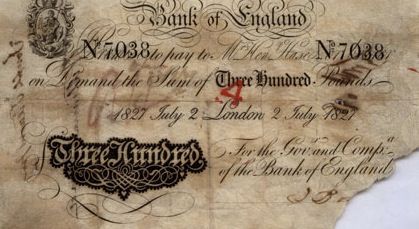 Bank of England
Nº 7038 to pay to Mr Hen Hase Nº 7038
on Demand the Sum of Three Hundred Pounds
4
1827 July 2 London 2 July 1827
Three Hundred
For the Govr. and Compa.
of the Bank of England